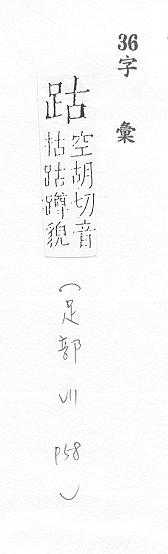 36字彙
跍
空胡切音
枯跍蹲貌
(足部 VII P58)